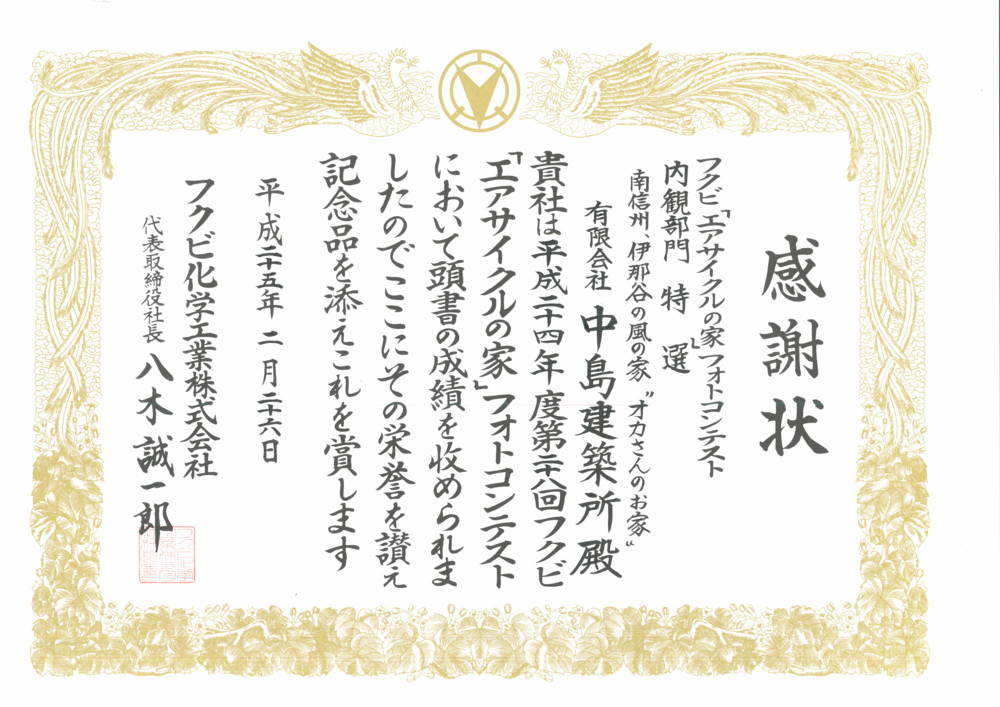 感謝状
フクビ「エアサイクルの家」フォトコンテスト
内観部門 特選
南信州、伊那谷の風の家〝オカさんのお家〟
有限会社 中島建築所殿
貴社は平成二十四年度第二十八回フクビ
「エアサイクルの家」フォトコンテスト
において頭書の成績を収められま
したのでここにその栄誉を讃え
記念品を添えこれを賞します
平成二十五年二月二十六日
フクビ化学工業株式会社
代表取締役社長 八木誠一郎